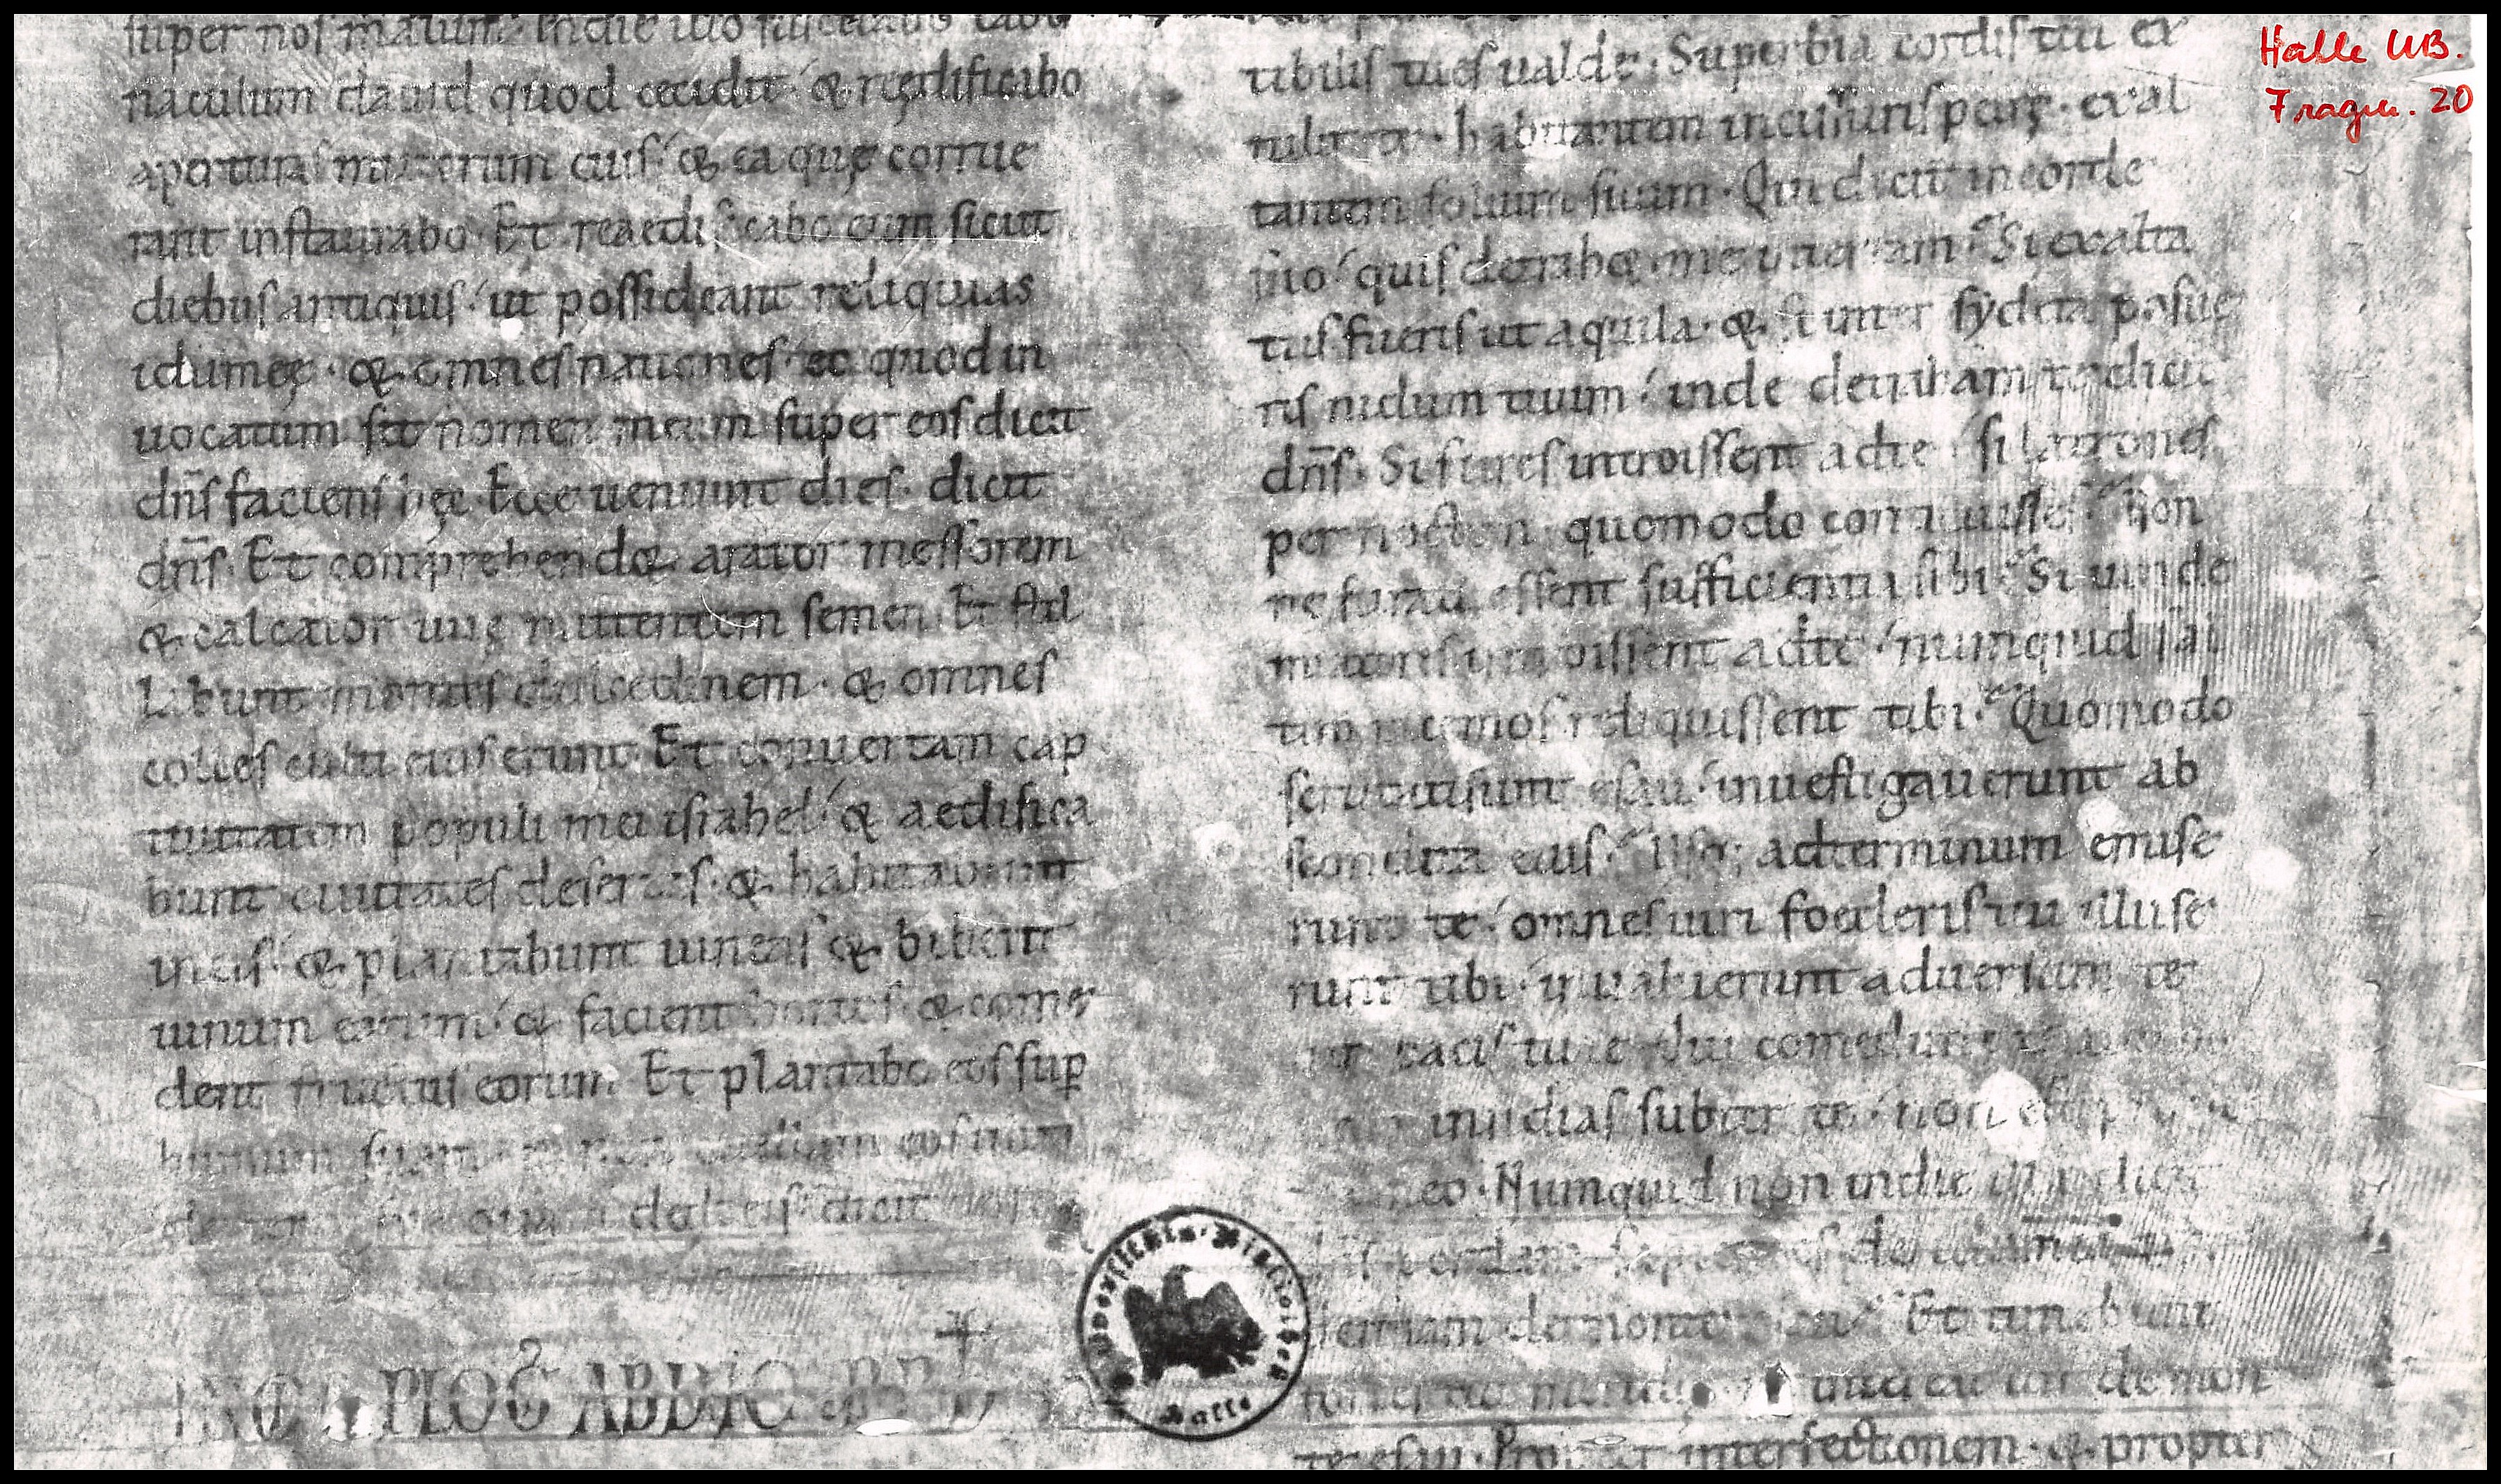 super nos malum. In die illo suscitabo taber
naculum dauid quod cecidit. & reędificabo
aperturas murorum eius. & ea quę corrue
rant instaurabo. Et reaedificabo eum sicut
diebus antiquis. ut possideant reliquias
idumeę. & omnes nationes. eo quod in
uocatum sit nomen meum super eos dicit
dn̄s faciens hęc. Ecce ueniunt dies. dicit
dn̄s. Et comprehend& arator messorem
& calcator uuę mittentem semen. Et stil
labunt montes dulcedinem. & omnes
colles culti erunt. Et conuertam cap
tiuitatem populi mei israhel. & aedifica
bunt ciuitates desertas. & habitabunt
& plantabunt uineas & bibent
uinum earum. & facient hortos. & come
dent fructus eorum. Et plantabo eos sup
humum suam. & non euellam eos
quam dedi eis. dicit
INC PLOG ABDIĘ
tibilis tu es ualde. Superbia cordis tui ex
tulit te. habitantem in scissuris petrę. exal
tantem solium suum. Qui dicit in corde
suo. quis detrah& me in terram. Si exalta
tus fueris ut aquila. & si inter sydera posue
ris nidum tuum. inde detraham te dicit
dn̄s. Si fures introissent ad te. si latrones
per noctem. quomodo conticuisses. Non
ne furati essent sufficientia sibi. Si uinde
miatores introissent ad te. numquid sal
tim racemos reliquissent tibi. Quomodo
scrutati sunt esau. inuestigauerunt ab
scondita eius. Usq; ad terminum emise
runt te. omnes uiri foederis tui illuse
runt tibi. inualuerunt aduersum te
uiri pacis tuae. qui comedunt
insidias subter te. non est
eo. Numquid non in die illa dicit
perdam sapientes de idumea
dentiam de monte esau. Et timebunt
fortes tui uir de mon
te esau. Propter interfectionem. & propter
Halle UB.
Fragm. 20
Universitäts-Bibliothek
Halle